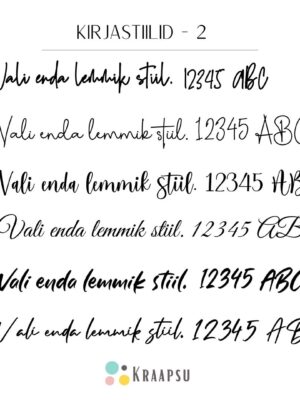 KIRJASTIILID - 2
Vali enda lemmik stiil. 12345 ABC
Vali enda lemmik stiil. 12345 ABC
Vali enda lemmik stiil. 12345 AB
Vali enda lemmik stiil. 12345 AB
Vali enda lemmik stiil. 12345 ABC
Vali enda lemmik stiil. 12345 AB
KRAAPSU